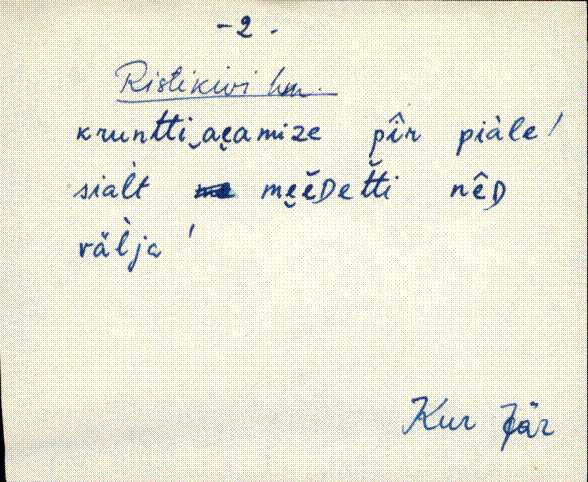 -2-
Ristikivi hm.
kruntti‿ai̯amize pîr piàle!
sialt mẹẹ̆Dет̆ti nêD
välja!
Kur Jär